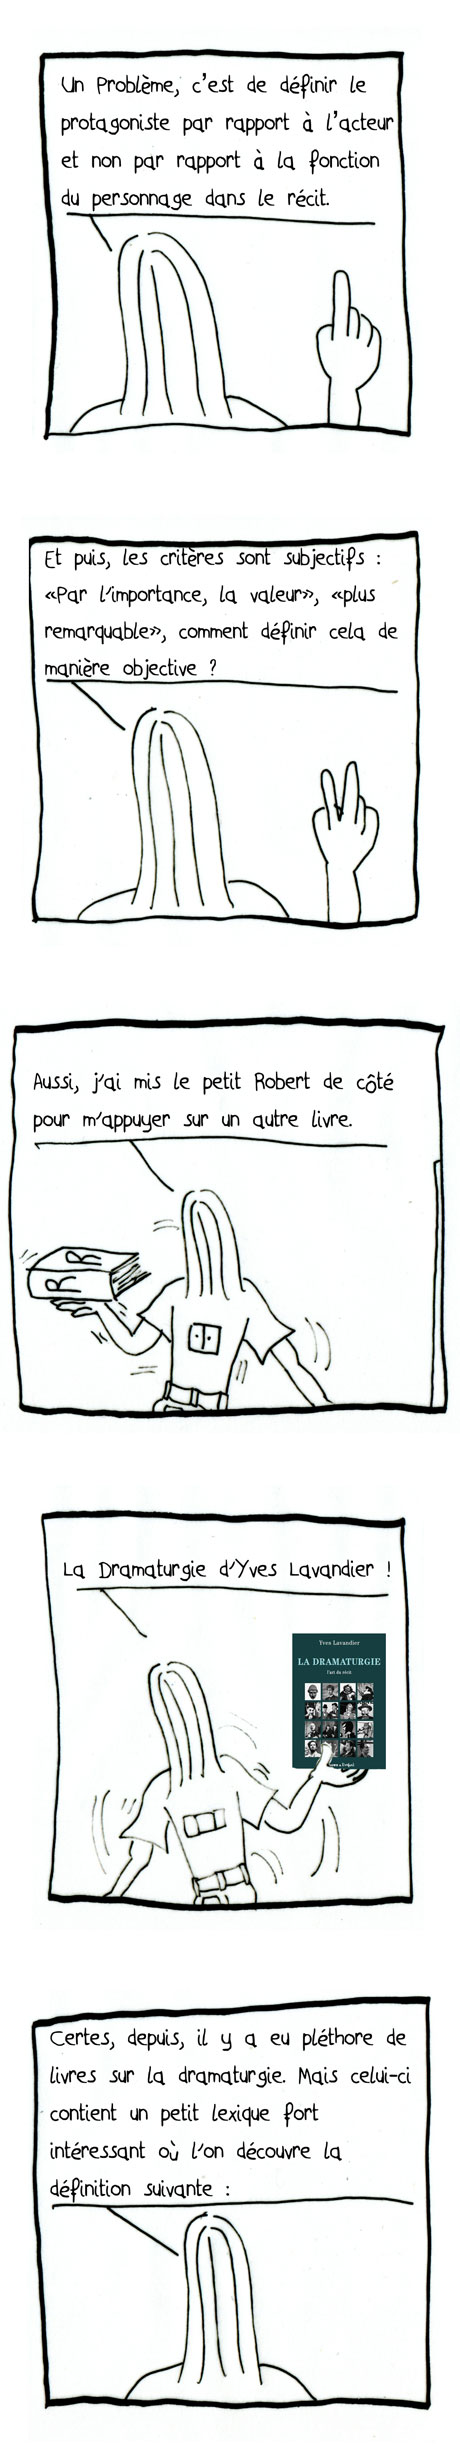 Un Problème, c'est de définir le
protagoniste par rapport à l'acteur
et non par rapport à la fonction
du personnage dans le récit.
Et puis, les critères sont subjectifs :
«Par l'importance, la valeur», «plus
remarquable», comment définir cela de
manière objective ?
Aussi, j'ai mis le petit Robert de côté
pour m'appuyer sur un autre livre.
R
R
La Dramaturgie d'Yves Lavandier !
Yves Lavandier
LA DRAMATURGIE
l'art du récit
Certes, depuis, il y a eu pléthore de
livres sur la dramaturgie. Mais celui-ci
contient un petit lexique fort
intéressant où l'on découvre la
définition suivante :